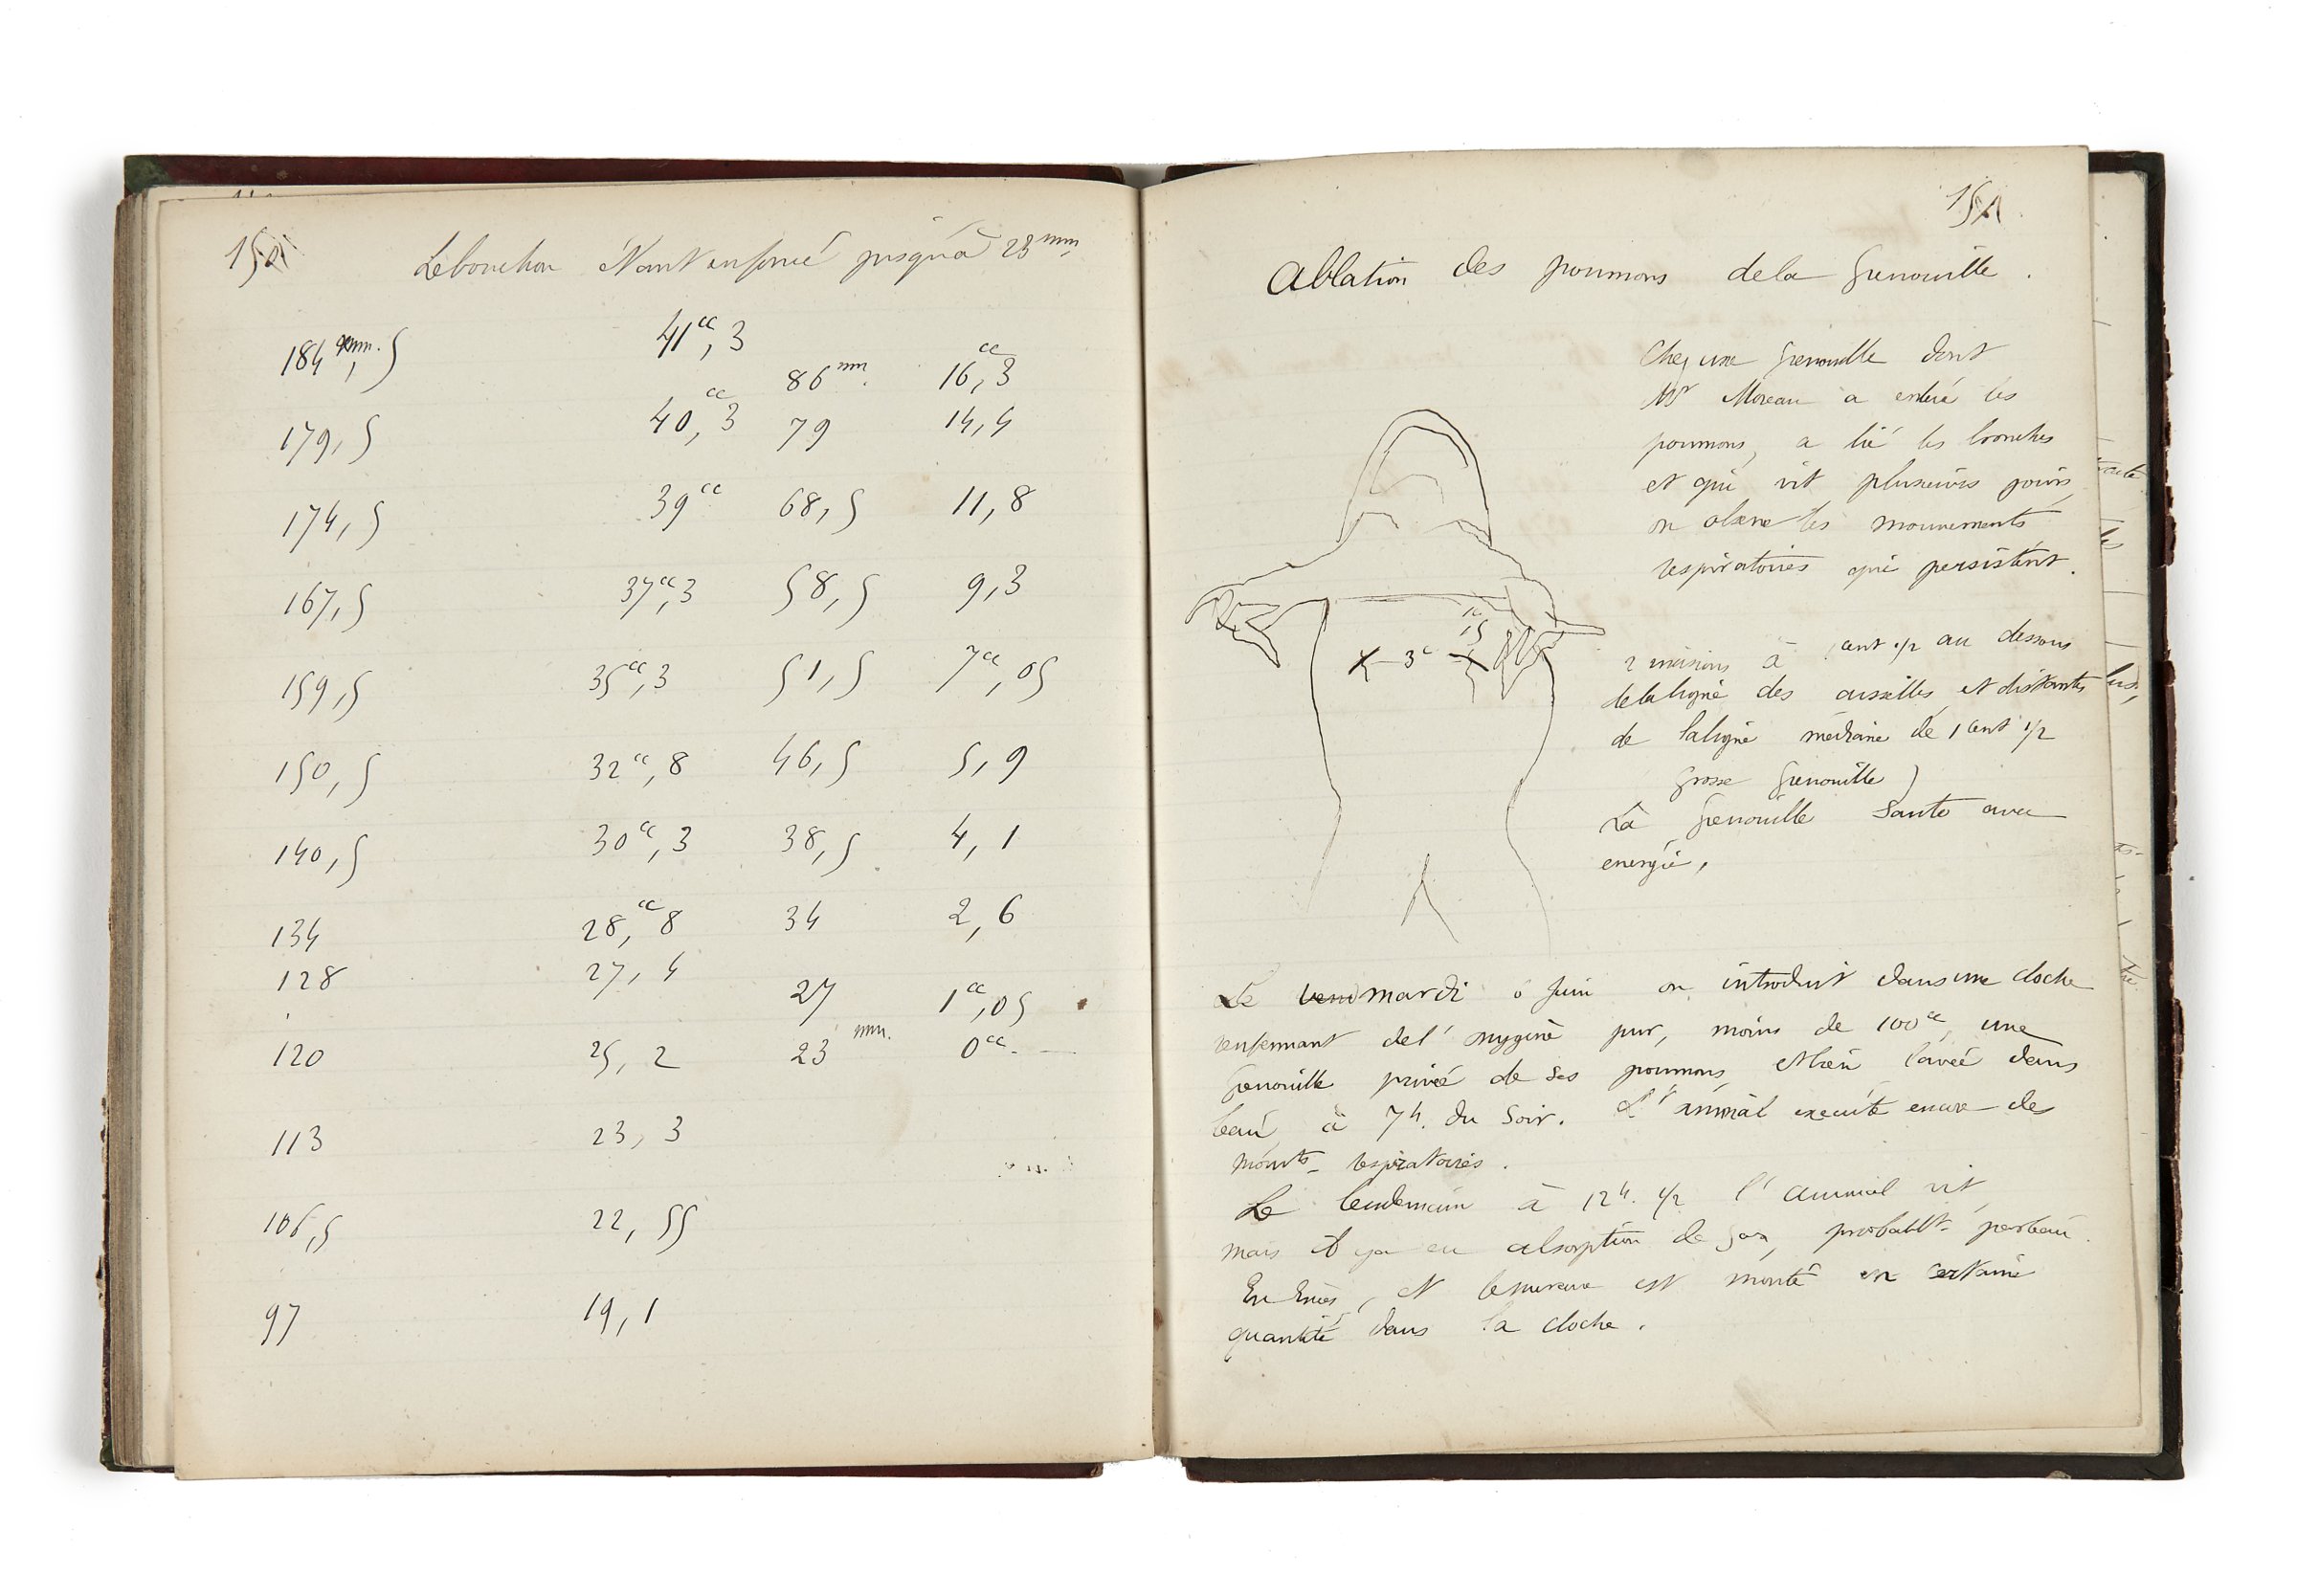 Le bouchon étant enfoncé jusqu'à 23mm.
184mm,5 41cc,3
86mm. 16cc,3
179,5 40cc,3 79 14,4
174,5 39cc 68,5 11,8
167,5 37cc,3 58,5 9,3
159,5 35cc,3 51,5 7cc,05
150,5 32cc,8 46,5 5,9
140,5 30cc,3 38,5 4,1
134 28cc,8 34 2,6
128 27,4
27 1cc,05
120 25,2 23mm. 0cc.
113 23,3
106,5 22,55
97 19,1
151
Ablation des poumons de la grenouille.
Chez une grenouille dont
Mr Moreau a enlevé les
poumons, a lié les bronches
et qui vit plusieurs jours,
on observe les mouvements
respiratoires qui persistent.
1c,5
x - 3c - x
2 incisions à 1 cent 1/2 au dessous
de la ligne des aisselles, et distantes
de la ligne médiane de 1 cent 1/2
grosse grenouille)
La grenouille saute avec
energie,
Le vend mardi 6 juin on introduit dans une cloche
renfermant de l'oxygène pur, moins de 100cc, une
grenouille privée de ses poumons, et bien lavée dans
l'eau, à 7h. du soir. L'animal execute encore des
mouvts respiratoires.
Le lendemain à 12h. 1/2 l'animal vit,
mais il y a eu absorption de gaz, probablt par l'eau.
et le mercure est monté en certaine
quantité dans la cloche.